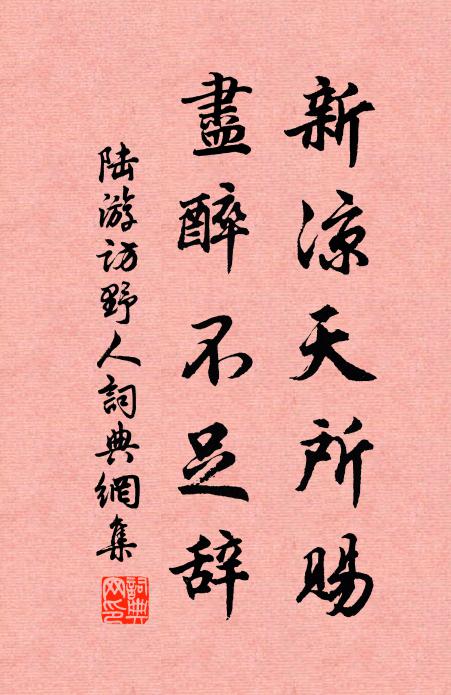 新凉天所賜
盡醉不足辞
陆游访野人詞典網集
詞典網印